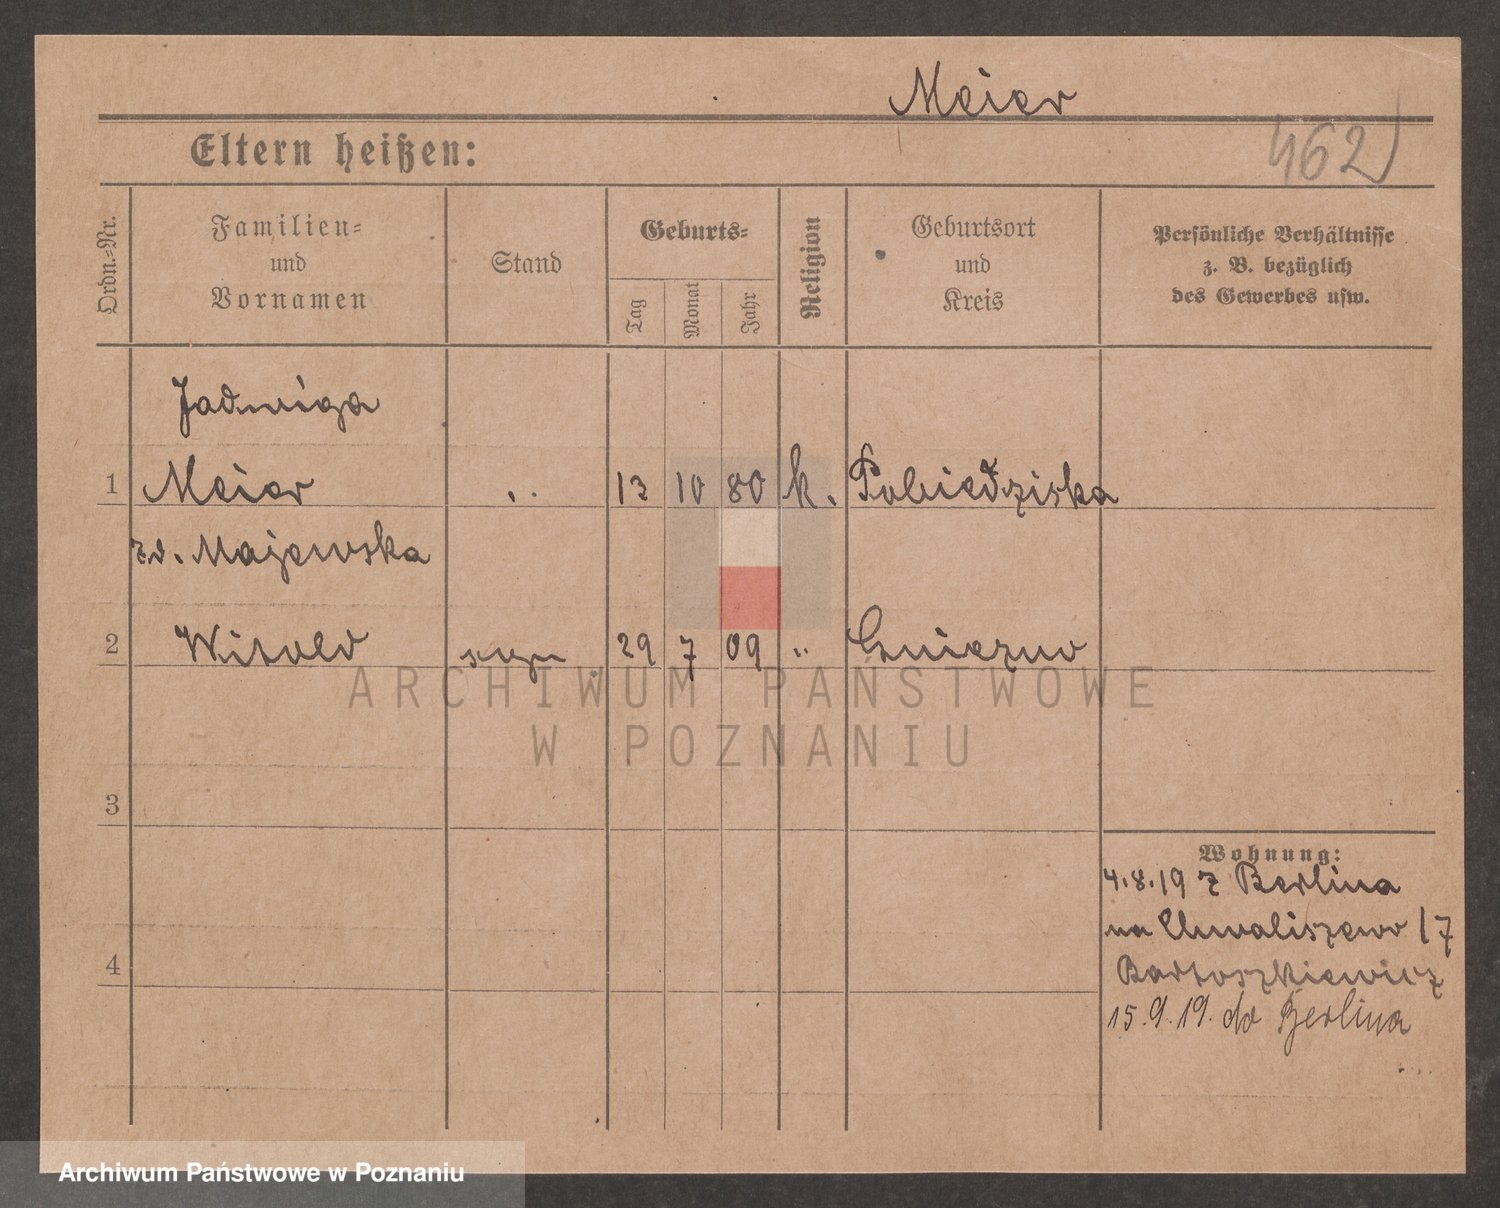 Meier
Eltern heißen:
462
Ordn.-Nr.
Familien-
und
Vornamen
Stand
Geburts-
Tag
Monat
Jahr
Religion
Geburtsort
und
Kreis
Persönliche Verhältnisse
z. B. bezüglich
des Gewerbes usw.
Jadwiga
1 Meier 13 10 80 k. Pobiedziska
zd. Majewska
2 Witold syn 29 7 09 " Gniezno
ARCHIWUM PAŃSTWOWE
W POZNANIU
3
Wohnung:
4.8.19 z Berlina
na Chwaliszewo 17
4
Bartoszkiewicz
15.9.19. do Berlina
Archiwum Państwowe w Poznaniu